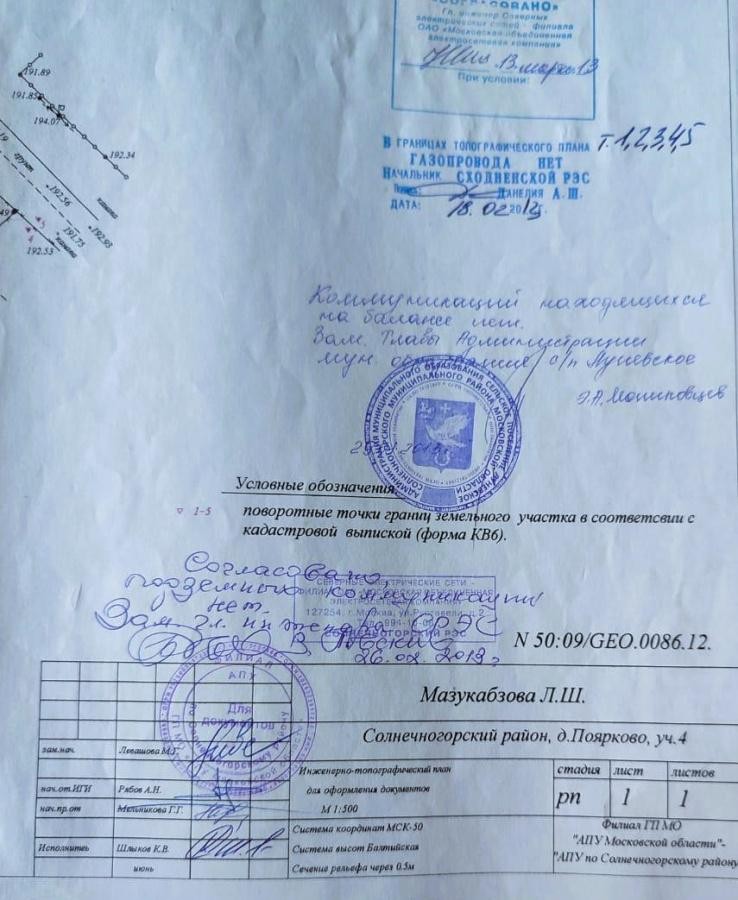 «СОГЛАСОВАНО»
Гл. инженер Северных
электрических сетей - филиала
ОАО «Московская объединенная
электросетевая компания»
13 марта 13
При условии:
191.89
191.85
194.07
192.34
19
грунт
канава
192.56
49
5
4
191.75
192.93
192.53
канава
В ГРАНИЦАХ ТОПОГРАФИЧЕСКОГО ПЛАНА т. 1,2,3,4,5
ГАЗОПРОВОДА НЕТ
НАЧАЛЬНИК СХОДНЕНСКОЙ РЭС
ДАНЕЛИЯ А.Ш.
ДАТА: 18.02 2013г.
Коммуникаций находящихся
на балансе нет.
Зам. Главы Администрации
мун. образования с/п Лунёвское
АДМИНИСТРАЦИЯ МУНИЦИПАЛЬНОГО ОБРАЗОВАНИЯ СЕЛЬСКОЕ ПОСЕЛЕНИЕ ЛУНЕВСКОЕ
СОЛНЕЧНОГОРСКОГО МУНИЦИПАЛЬНОГО РАЙОНА МОСКОВСКОЙ ОБЛАСТИ
2013г
Условные обозначения
1-5 поворотные точки границ земельного участка в соответсвии с
кадастровой выпиской (форма КВ6).
Согласовано
подземных коммуникаций
нет.
Зам. гл. инженера СРЭС
26.02.2013г
СЕВЕРНЫЕ ЭЛЕКТРИЧЕСКИЕ СЕТИ -
ФИЛИАЛ МОСКОВСКАЯ ОБЪЕДИНЕННАЯ
ЭЛЕКТРОСЕТЕВАЯ КОМПАНИЯ
127254, г. Москва, ул. Руставели, д.2
СОЛНЕЧНОГОРСКИЙ РЭС
N 50:09/GEO.0086.12.
ФИЛИАЛ
АПУ
Для
документов
по Солнечногорскому району
Мазукабзова Л.Ш.
Солнечногорский район, д.Поярково, уч.4
зам.нач. Левашова М.Г.
нач.от.ИГИ Рябов А.Н.
нач.пр.от Мельникова Г.Г.
Исполнитель Шлыков К.В.
июнь
Инженерно-топографический план
для оформления документов
М 1:500
Система координат МСК-50
Система высот Балтийская
Сечение рельефа через 0.5м
стадия лист листов
рп 1 1
Филиал ГП МО
"АПУ Московской области"-
"АПУ по Солнечногорскому району